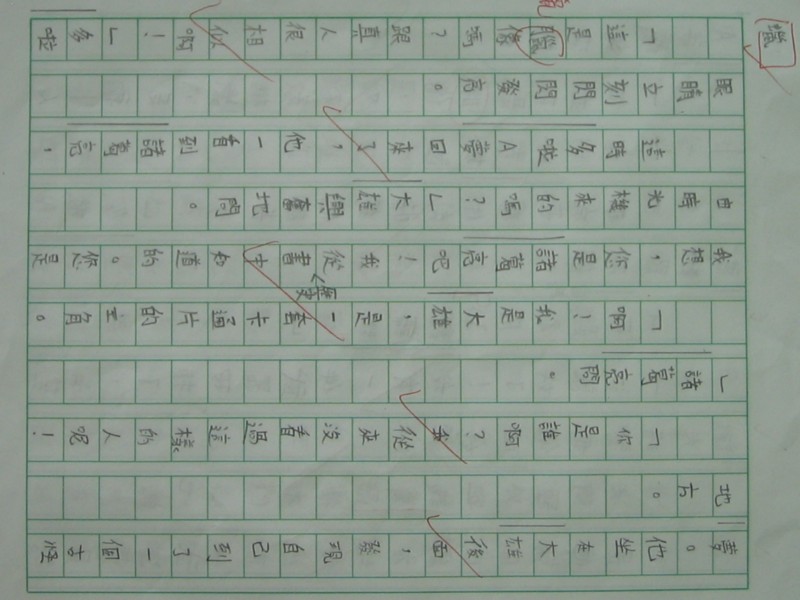 夢。他坐在大雄後面，發現自己到了一個古怪
地方。
「你是誰啊？我從來沒看過這樣的人呢！
」諸葛亮問。
「啊！我是大雄，是一套卡通片的主角。
我想，你是諸葛亮吧！我從書中知道的。您是
歷史
由時光機來的嗎？」大雄興奮地問。
這時多啦A夢回來了，他一看到諸葛亮，
眼睛立刻閃閃發亮。
「這是臘像嗎？跟真人很相似啊！」多啦
蠟